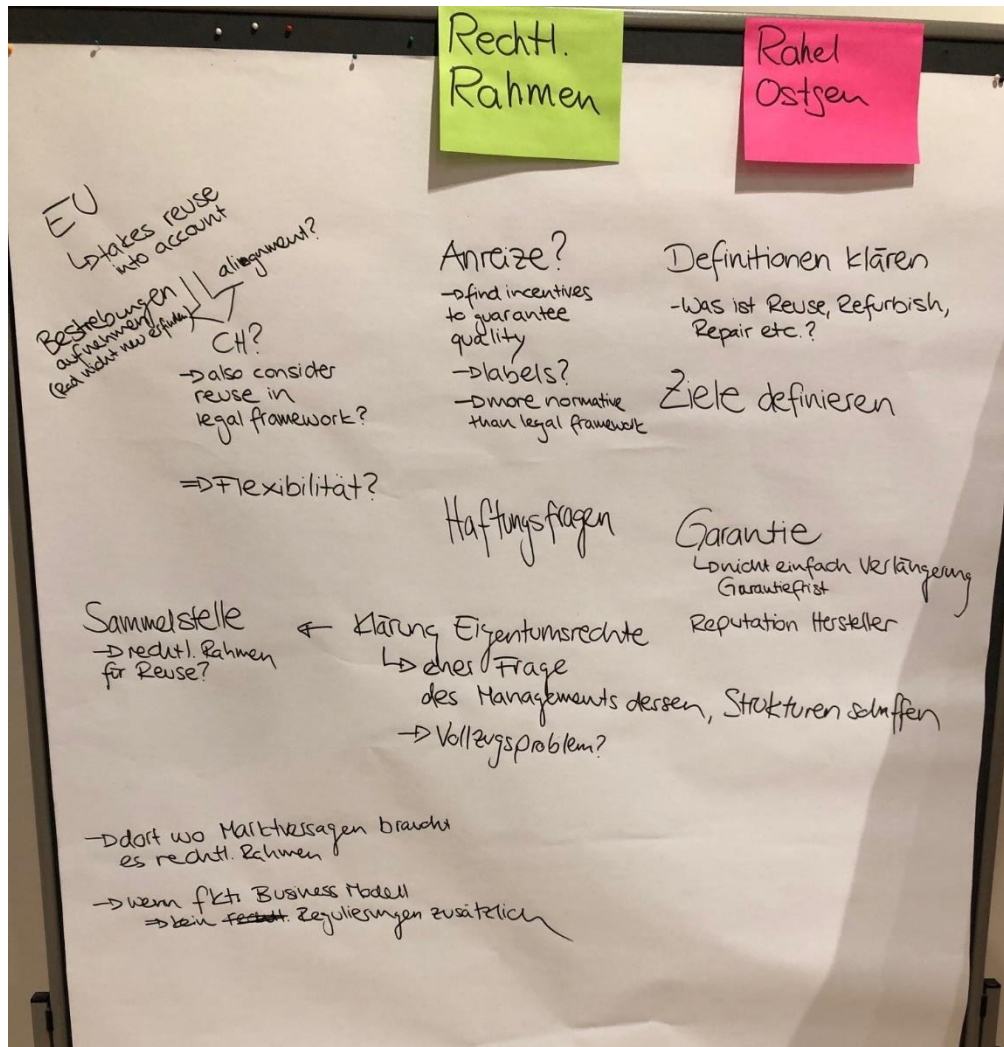 Rechtl.
Rahmen
Rahel
Ostgen
EU
↳ takes reuse
into account
alignment?
Bestrebungen
aufnehmen
(Rad nicht neu erfinden)
CH?
→ also consider
reuse in
legal framework?
⇒ Flexibilität?
Anreize?
→ find incentives
to guarantee
quality
→ labels?
→ more normative
than legal framework
Definitionen klären
- Was ist Reuse, Refurbish,
Repair etc.?
Ziele definieren
Haftungsfragen
Garantie
↳ nicht einfach Verlängerung
Garantiefrist
Reputation Hersteller
Sammelstelle
→ rechtl. Rahmen
für Reuse?
← Klärung Eigentumsrechte
↳ eher Frage
des Managements dessen, Strukturen schaffen
→ Vollzugsproblem?
→ dort wo Marktversagen braucht
es rechtl. Rahmen
→ wenn fkt. Business Modell
⇒ kein rechtl. Regulierungen zusätzlich